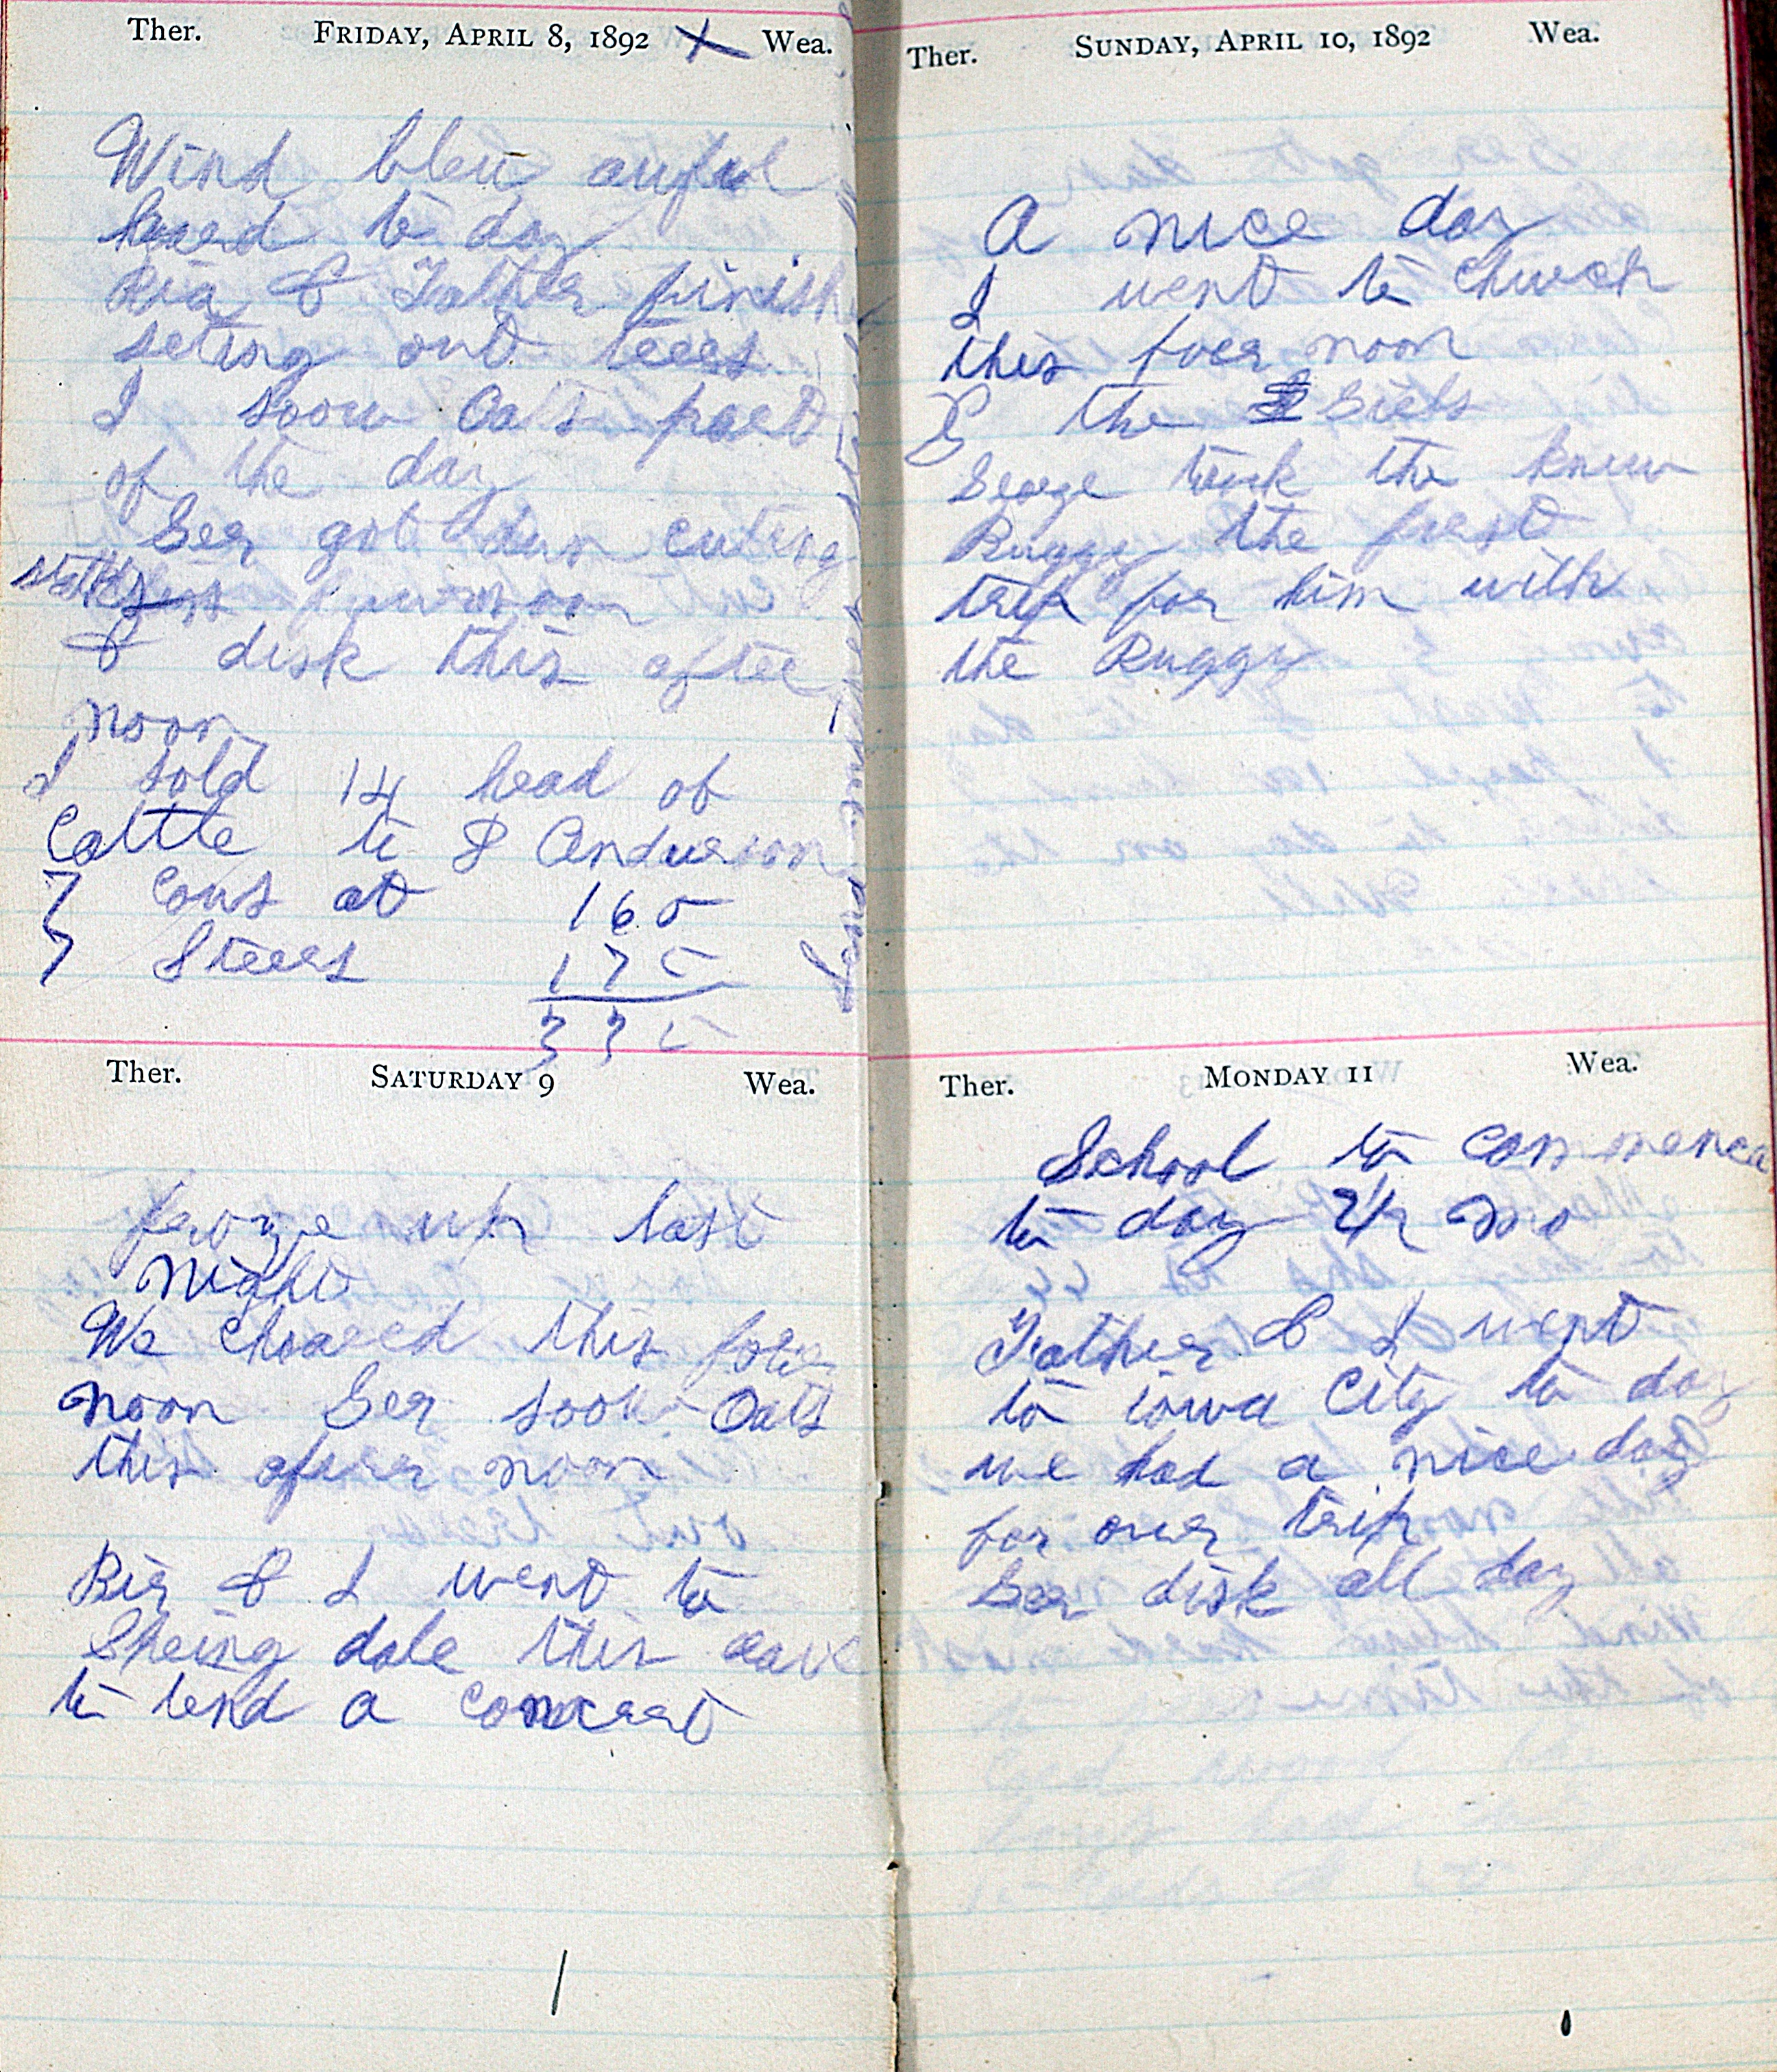 Ther. FRIDAY, APRIL 8, 1892 X Wea.
Wind blew awful
hard to day
Ria & Father finish
seting out trees
I soow Oats part
of the day
Ger got dun cuting
stalks this fournoon
& disk this after
noon
I sold 14 head of
Cattle to J Anderson
7 Cows at 160
7 Steers 175
335
Ther. SATURDAY 9 Wea.
froze up last
night
We choared this fore
noon Ger soow Oats
this after noon
Rir & I went to
Spring dale this eave
to tend a concert
Ther. SUNDAY, APRIL 10, 1892 Wea.
A nice day
I went to Church
this foer noon
& the Girls
George took the knew
Buggy the first
trip for him with
the Buggy
Ther. MONDAY 11 Wea.
School to commence
to day 2/2 mo
Father & I went
to iowa City to day
we had a nice day
for ouer trip
Ger disk all day